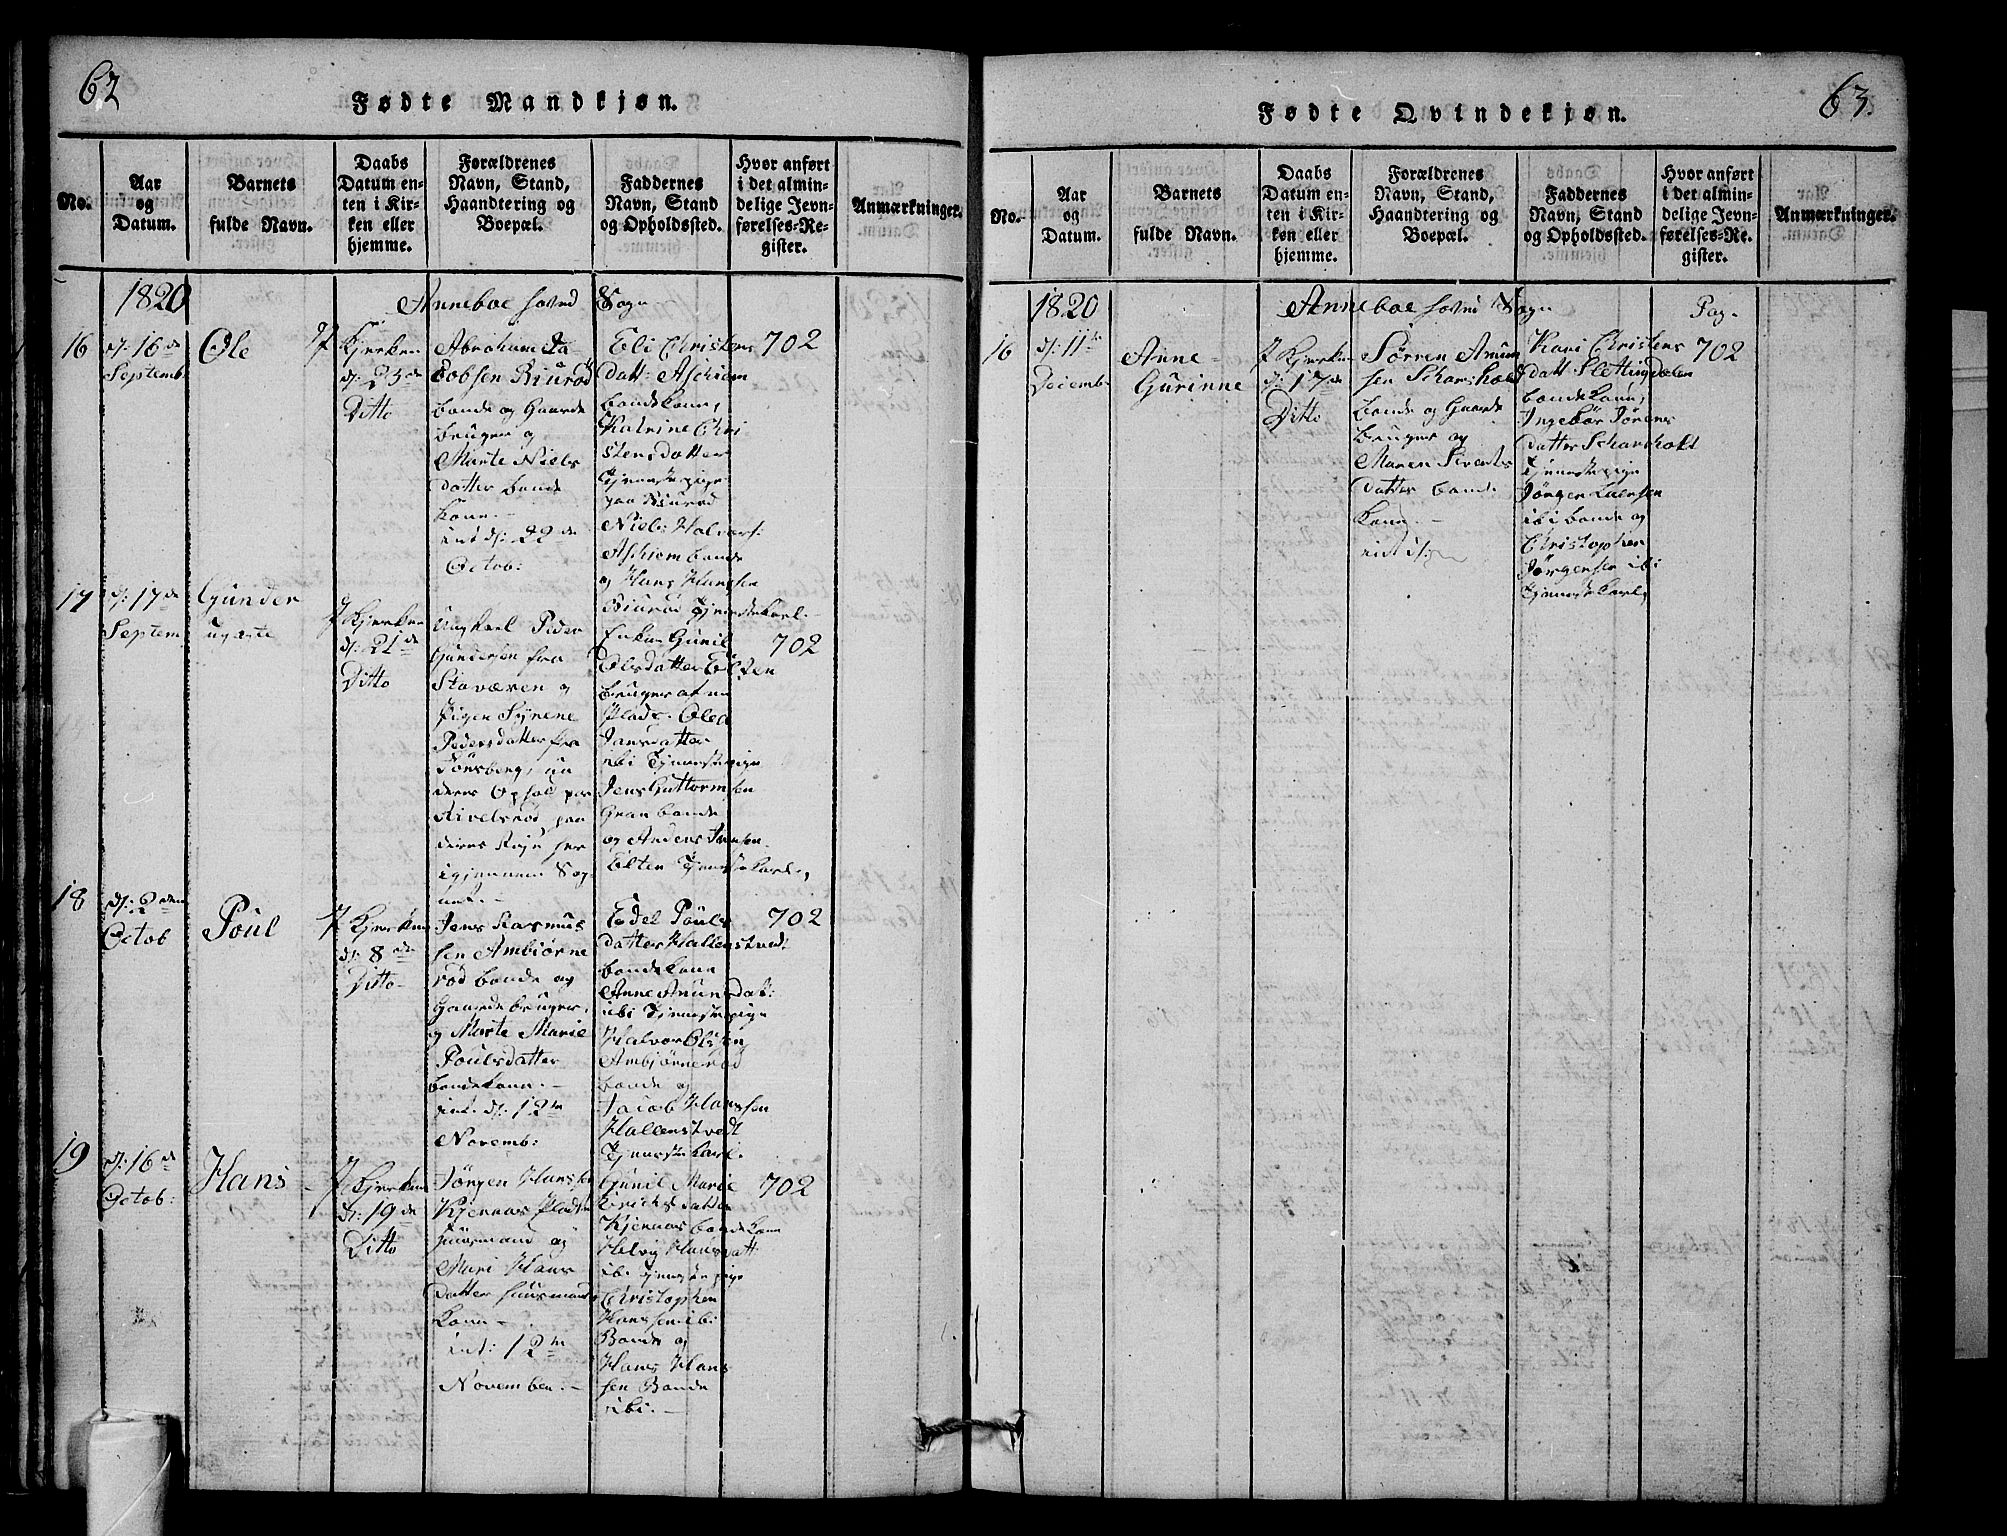 62
Fødte Mandkjøn.
No.
Aar
og
Datum.
Barnets
fulde Navn.
Daabs
Datum en-
ten i Kir-
ken eller
hjemme.
Forældrenes
Navn, Stand,
Haandtering og
Boepæl.
Faddernes
Navn, Stand
og Opholdssted.
Hvor anført
i det almin-
delige Jevn-
førelses-Re-
gister.
Anmærkninger.
1820
Anneboe hoved Sogn
16
d: 16de
Septemb
Ole
I Kjerken
d: 23de
Ditto
Abraham Ja
cobsen Biurød
bonde og Gaard
bruger og
Marte Niels
datter bonde
kone. -
int d: 29de
Octob:
Eli Christens
datt: Aschiem
bondekone,
Katrine Chri
stensdatter
Tjenestepige
paa Biurød
Niels Halvors:
Aschiem bonde
og Hans Hanssen
Biurød Tjenestekarl.
702
17
d: 17de
Septem
Gunder
uægte
I Kjerken
d: 21de
Ditto
Ungkarl Peder
Gundersen fra
Staværen og
Pigen Syrene
Pedersdatter fra
Tønsberg,
deres Ophol paa
Aivelsrød paa
deres Reise her
igjennem Sog
net. -
Enken Gunil
Olsdatter Elten
bruger af en
Plads. Olea
Jansdatter
ibi Tjenestepige
Jens Guttormsen
Gran bonde
og Anders Jensen
Elten Tjenestekarl,
702
18
d: 2den
Octob
Poul
I Kjerken
d: 8de
Ditto
Jens Rasmus
sen Ambiørne
rød bonde og
Gaardebruger,
og Marte Marie
Poulsdatter
bondekone. -
int. d: 12te
Novemb:
Edel Pouls
datter Hallenstvedt
bondekone
Anne Anunsdat:
ibi Tjenestepige
Halvor Olsen
Ambjørnerød
bonde og
Jacob Hanssen
Hallenstvedt
Tjenestekarl.
702
19
d: 16de
Octob:
Hans
I Kjerken
d: 19de
Ditto
Jørgen Hanssen
Kjernaas Plads
huusmand og
Mari Hans
datter huusmands
kone -
int: 12te
November. -
Gunil Marie
Ericksdatter
Kjernaas bondekone
Helvig Hansdatt:
ibi Tjenestepige
Christopher
Hanssen ibi
Bonde og
Hans Hans
sen Bonde
ibi. -
702
63.
Fødte Qvindekjøn.
No.
Aar
og
Datum.
Barnets
fulde Navn.
Daabs
Datum en-
ten i Kir-
ken eller
hjemme.
Forældrenes
Navn, Stand,
Haandtering og
Boepæl.
Faddernes
Navn, Stand
og Opholdssted.
Hvor anført
i det almin-
delige Jevn-
førelses-Re-
gister.
Anmærkninger.
1820
Anneboe hoved Sogn
Pag.
16
d: 11te
Decemb
Anne
Gurinne
I Kjerken
d: 17de
Ditto
Sørren Anun
sen Skarsholt
bonde og Gaarde
bruger og
Maren Siverts
datter bonde
kone. -
int d:
Kari Christens
datt Slettingdalen
bondekone,
Ingebør Jørens
datter Scharsholt
Tjenestepige
Jørgen Larsen
ibi bonde og
Christopher
Jørgensen ibi
Tjenestekarl,
702